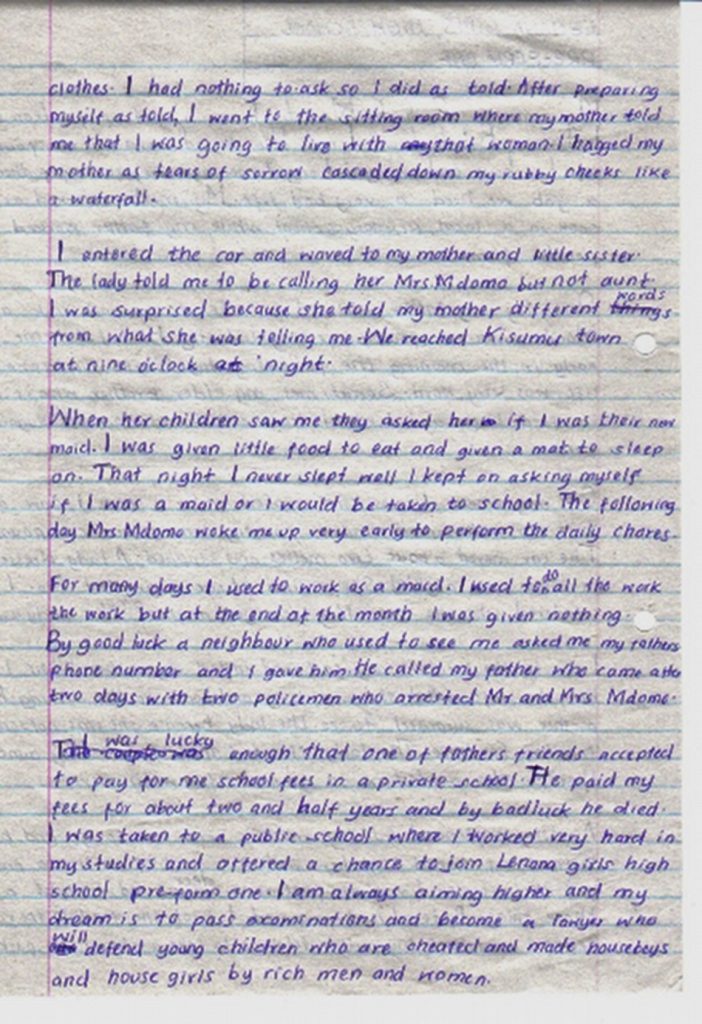 clothes. I had nothing to ask so I did as told. After preparing
myself as told, I went to the sitting room where my mother told
me that I was going to live with that woman. I hagged my
mother as tears of sorrow cascaded down my rubby cheeks like
a waterfall.
I entered the car and waved to my mother and little sister.
The lady told me to be calling her Mrs. Mdomo but not aunt.
I was surprised because she told my mother different words
from what she was telling me. We reached Kisumu town
at nine o'clock at night.
When her children saw me they asked her if I was their new
maid. I was given little food to eat and given a mat to sleep
on. That night I never slept well I kept on asking myself
if I was a maid or I would be taken to school. The following
day Mrs Mdomo woke me up very early to perform the daily chores.
For many days I used to work as a maid. I used to do all the work
the work but at the end of the month I was given nothing.
By good luck a neighbour who used to see me asked me my fathers
phone number and I gave him. He called my father who came after
two days with two policemen who arrested Mr and Mrs Mdomo.
I was lucky enough that one of fathers friends accepted
to pay for me school fees in a private school. He paid my
fees for about two and half years and by badluck he died.
I was taken to a public school where I worked very hard in
my studies and offered a chance to join Lenana girls high
school pre-form one. I am always aiming higher and my
dream is to pass examinations and become a lawyer who
will defend young children who are cheated and made houseboys
and house girls by rich men and women.